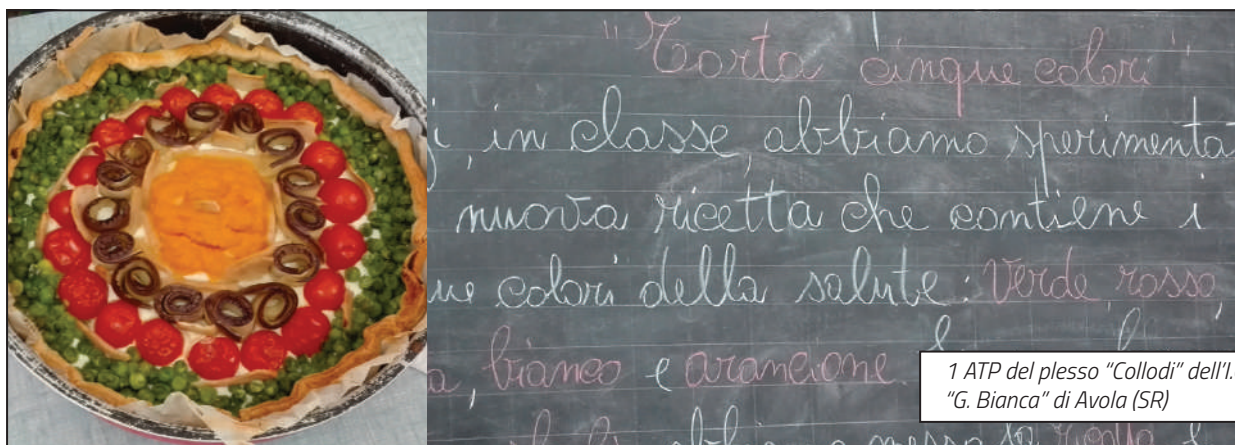 "Torta cinque colori"
in classe, abbiamo sperimentat
nuova ricetta che contiene i
ue colori della salute: Verde, rosso,
a, bianco e arancione
abbiamo messo la ricotta
1 ATP del plesso "Collodi" dell'I.
"G. Bianca" di Avola (SR)